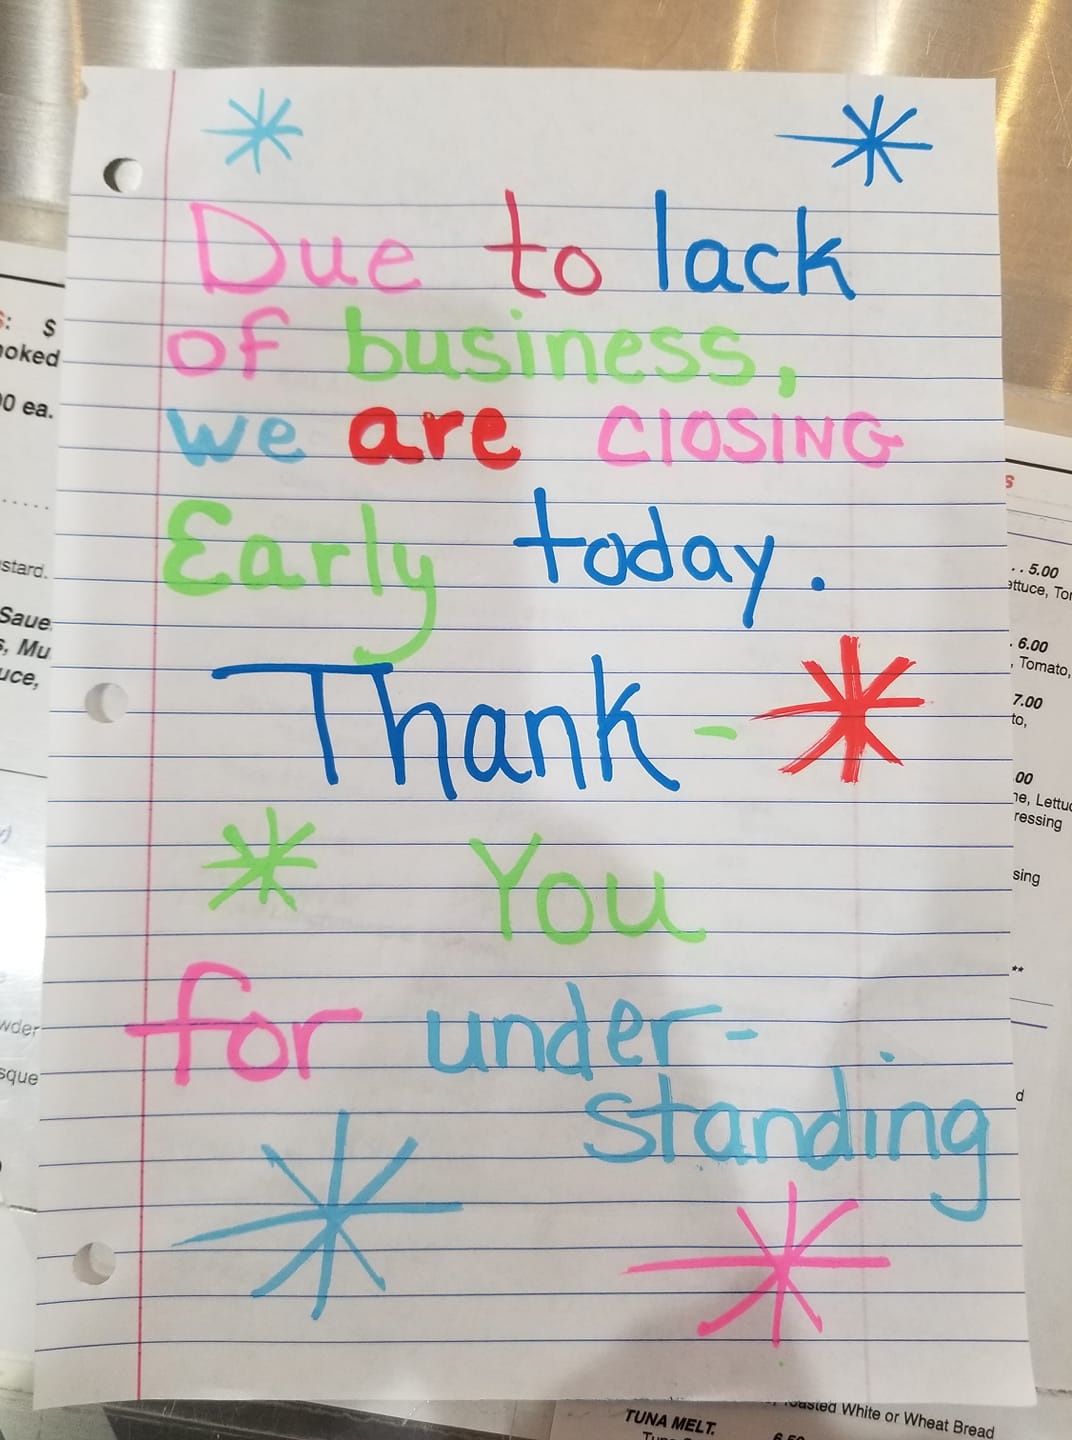 Due to lack
of business,
we are ClOSING
Early today.
Thank -
You
for under-
standing
S
oked
00 ea.
stard.
Saue
, Mu
uce,
wder
sque
s
. . 5.00
ettuce, Tor
. 6.00
, Tomato,
7.00
to,
.00
ne, Lettuc
ressing
sing
**
d
oasted White or Wheat Bread
TUNA MELT.